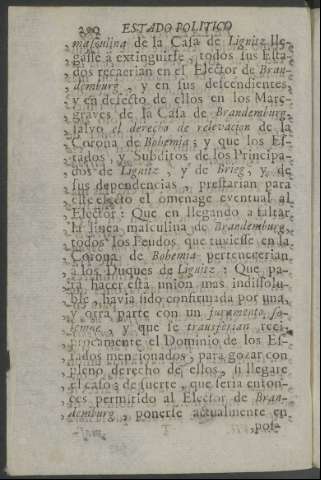 200 ESTADO POLITICO
masculina de la Casa de Lignitz lle-
gasse à extinguirse, todos sus Esta-
dos recaerian en el Elector de Bran-
demburg, y en sus descendientes,
y en defecto de ellos en los Marc-
graves de la Casa de Brandemburg,
salvo el derecho de relevacion de la
Corona de Bohemia; y que los Es-
tados, y Subditos de los Principa-
dos de Lignitz, y de Brieg, y de
sus dependencias, prestarian para
este efecto el omenage eventual al
Elector: Que en llegando à faltar
la linea masculina de Brandemburg,
todos los Feudos, que tuviesse en la
Corona de Bohemia pertenecerian
à los Duques de Lignitz: Que pa-
ra hacer esta union mas indissolu-
ble, havia sido confirmada por una,
y otra parte con un juramento so-
lemne, y que se transferian reci-
procamente el Dominio de los Es-
tados mencionados, para gozar con
pleno derecho de ellos, si llegare
el caso; de suerte, que seria enton-
ces permitido al Elector de Bran-
demburg, ponerse actualmente en
pos-